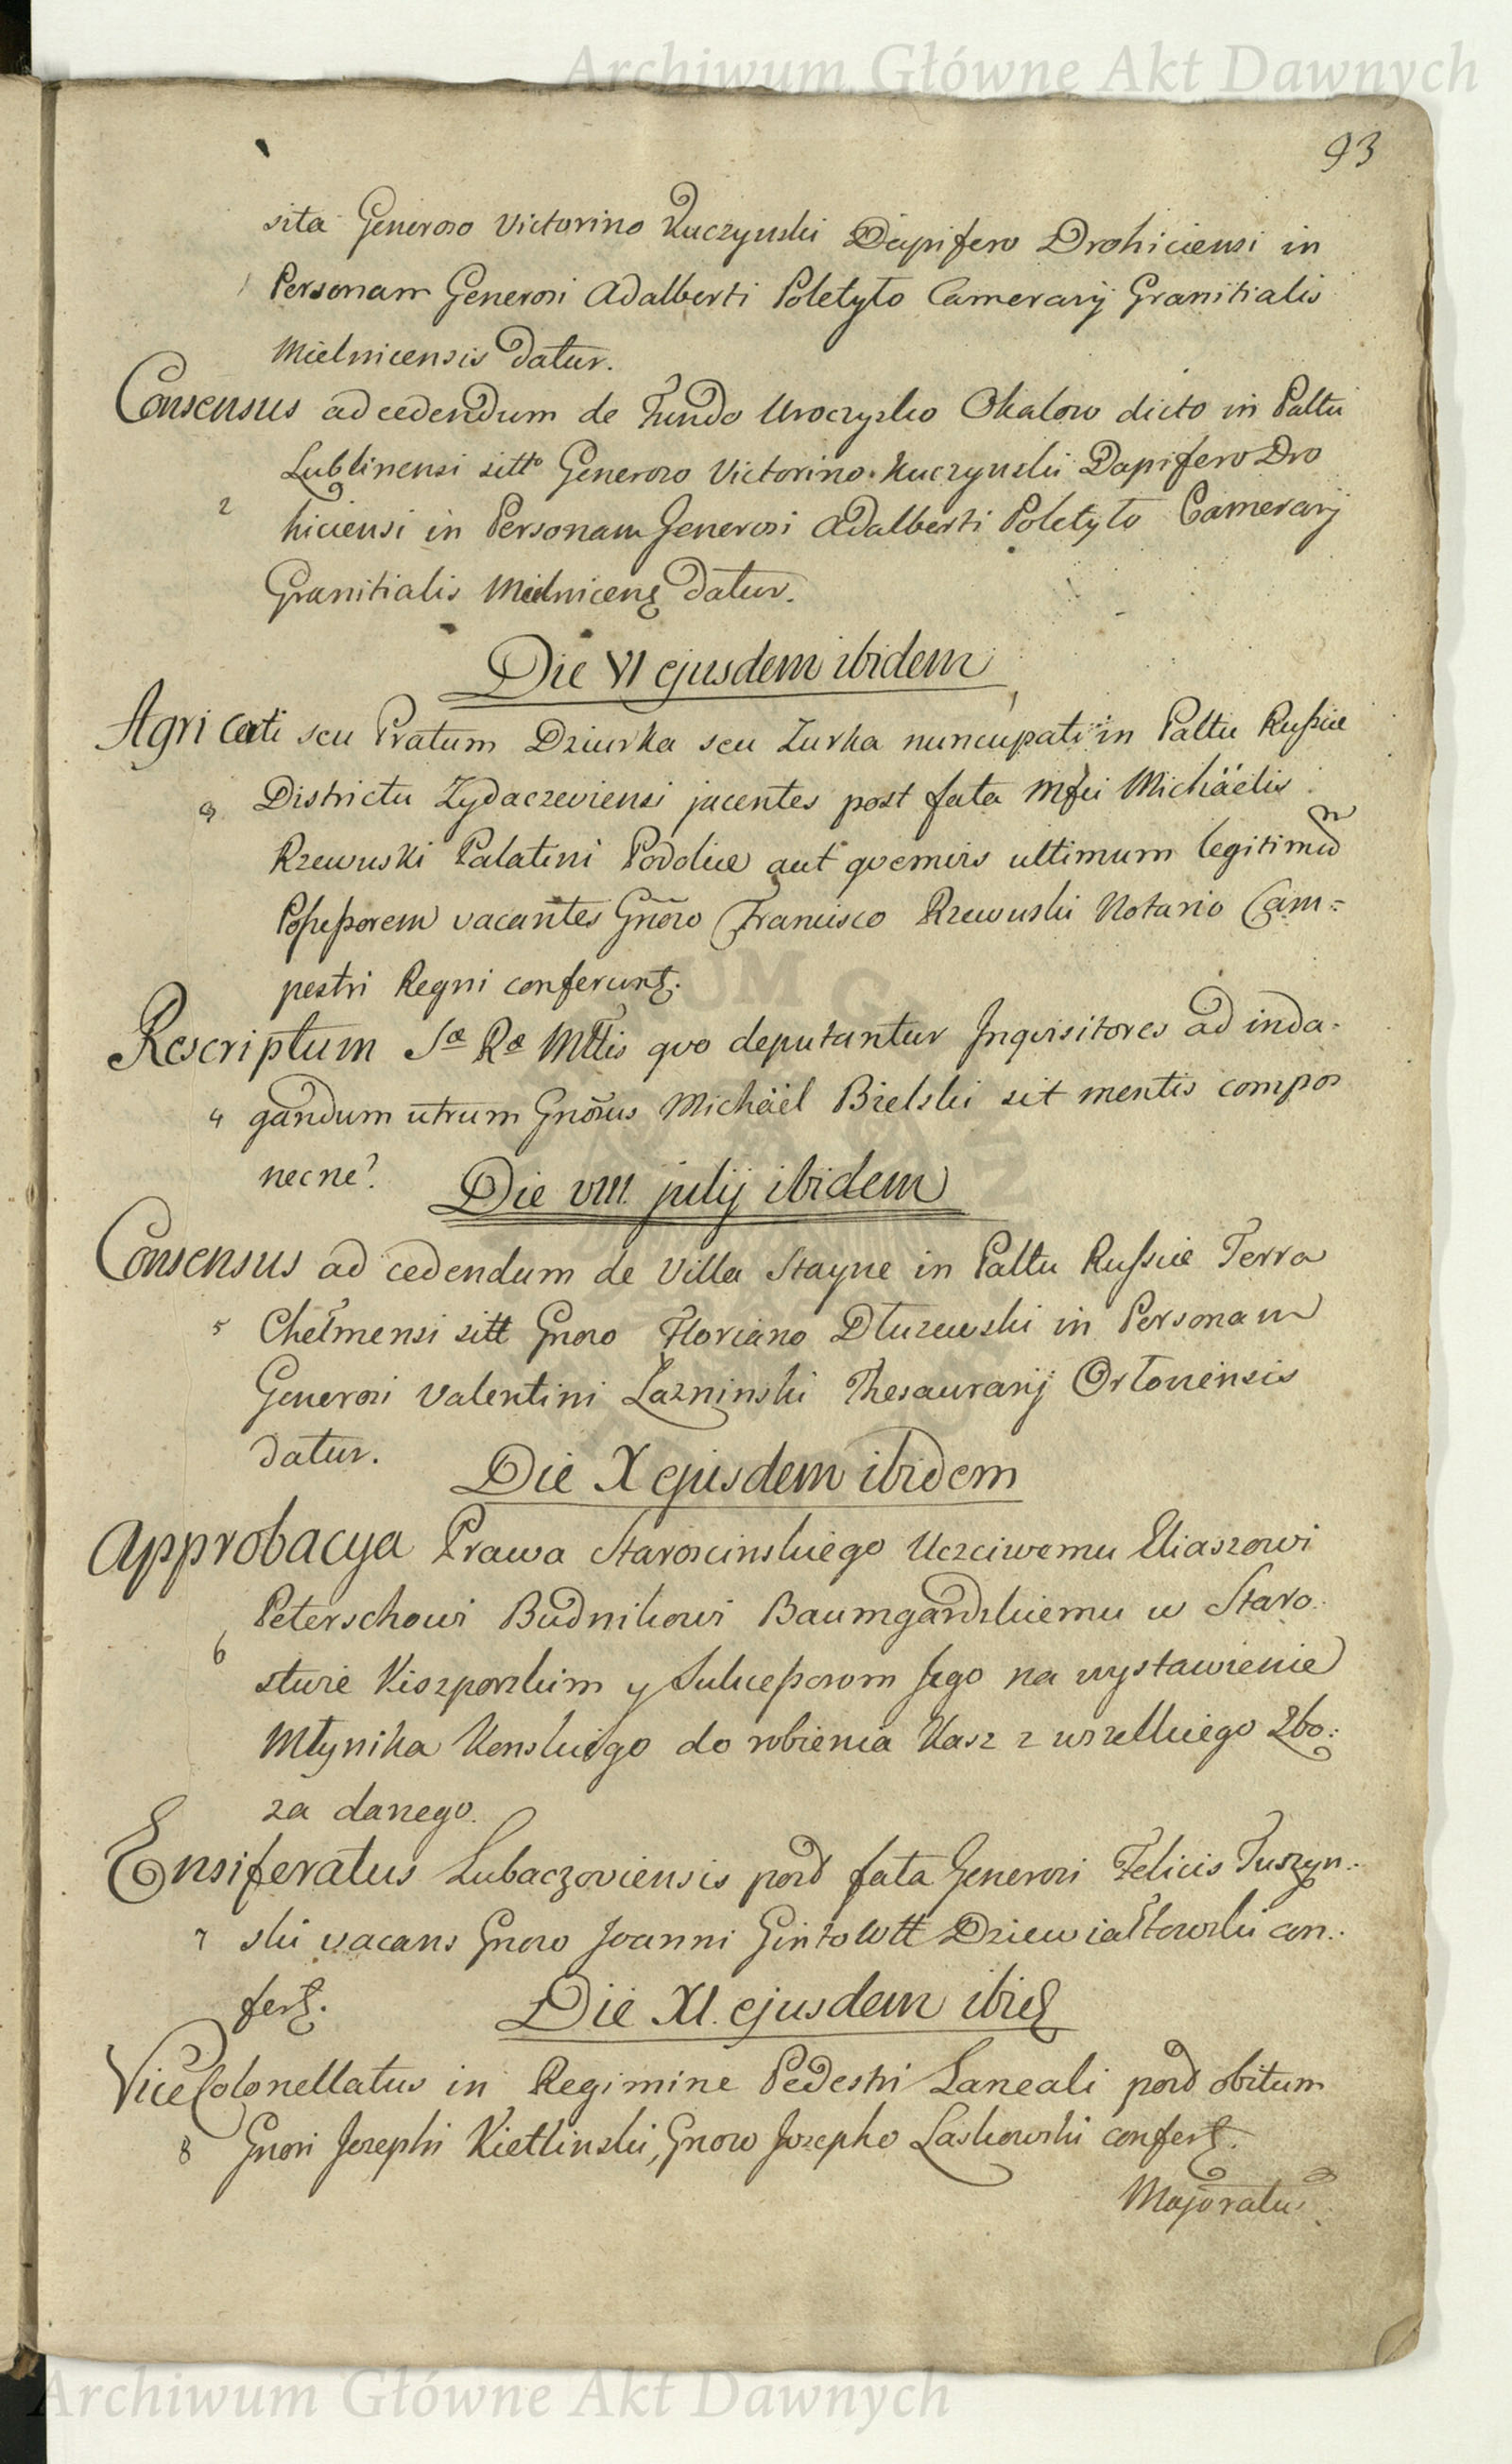 Archiwum Główne Akt Dawnych
93
sita Generoso Victorino Kuczynski Dapifero Drohiciensi in
1 Personam Generosi Adalberti Poletyło Camerarij Granitialis
Mielnicensis datur.
Consensus ad cedendum de Fundo Uroczysko Okalow dicto in Paltu
Lublinensi sitto Generoso Victorino Kuczynski Dapifero Dro
2 hiciensi in Personam Generosi Adalberti Poletyło Camerarij
Granitialis Mielnicens datur.
Die VI ejusdem ibidem
Agri seu Pratum Dziurka seu Zurka nuncupati in Paltu Russiae
3 Districtu Zydaczeviensi jacentes post fata Mfci Michäelis
Rzewuski Palatini Podoliae aut qvemvis ultimum legitimum
Possessorem vacantes Gnõso Francisco Rzewuski Notario Cam=
pestri Regni conferunt.
Rescriptum Sæ Ræ Mttis qvo deputantur Inqvisitores ad inda-
4 gandum utrum Gnõsus Michäel Bielski sit mentis compos
necne?
Die VIII. julij ibidem
Consensus ad cedendum de Villa Stayne in Paltu Russiae Terra
5 Chełmensi sitt Gnoso Floriano Dłuzewski in Personam
Generosi Valentini Łazninski Thesaurarij Orłoviensis
datur.
Die X ejusdem ibidem
Approbacya Prawa Staroscinskiego Uczciwemu Eliaszowi
Peterschowi Budnikowi Baumgardskiemu w Staro-
6 stwie Kiszporskim y Sukcessorom Jego na wystawienie
Młynika Konskiego do robienia Kasz z wszelkiego Zbo-
za danego.
Ensiferatus Lubaczoviensis post fata Generosi Felicis Tuszyn-
7 ski vacans Gnoso Joanni Gintowtt Dziewiałtowski con-
fert.
Die XI. ejusdem ibid
ViceColonellatus in Regimine Pedestri Laneali post obitum
8 Gnosi Josephi Kietlinski, Gnoso Josepho Laskowski confert.
Majoratus
Archiwum Główne Akt Dawnych